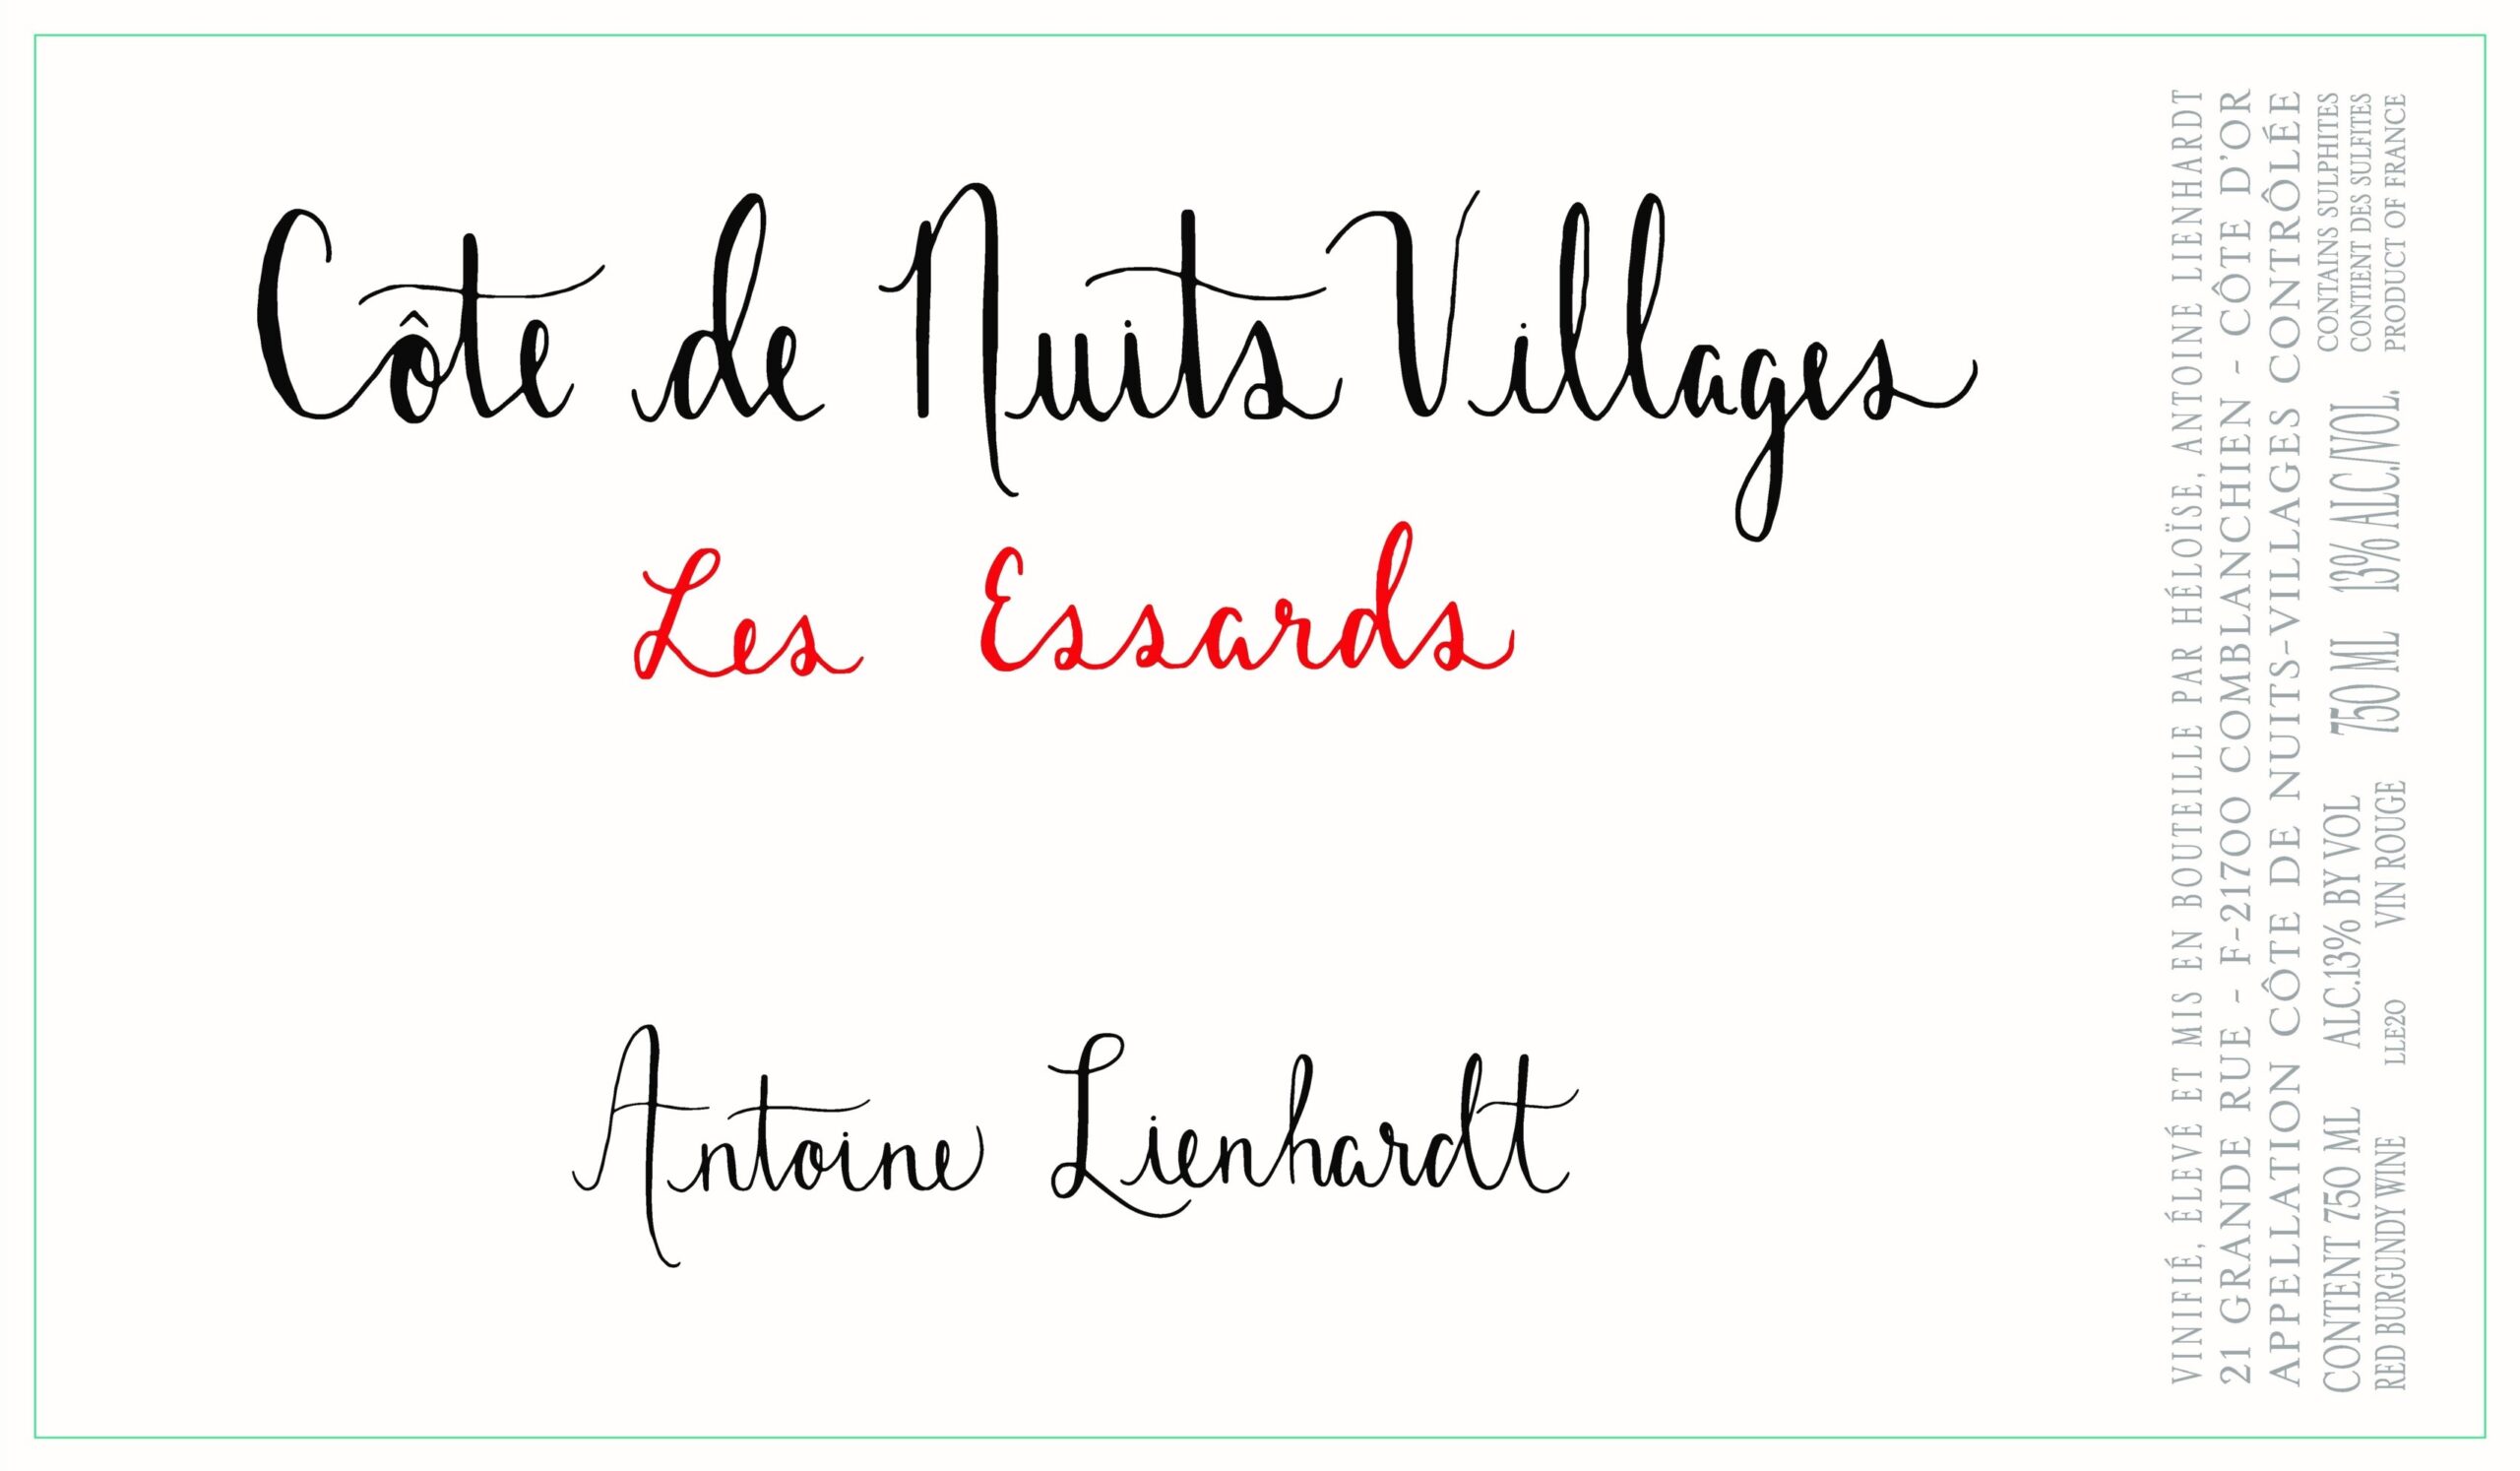 Côte de Nuits Villages
Les Essards
Antoine Lienhardt
VINIFIÉ, ÉLEVÉ ET MIS EN BOUTEILLE PAR HÉLOÏSE, ANTOINE LIENHARDT
21 GRANDE RUE - F-21700 COMBLANCHIEN - CÔTE D'OR
APPELLATION CÔTE DE NUITS-VILLAGES CONTRÔLÉE
CONTENT 750 ML ALC.13% BY VOL
RED BURGUNDY WINE LLE20 VIN ROUGE
750 ML 13% ALC./VOL.
CONTAINS SULPHITES
CONTIENT DES SULFITES
PRODUCT OF FRANCE